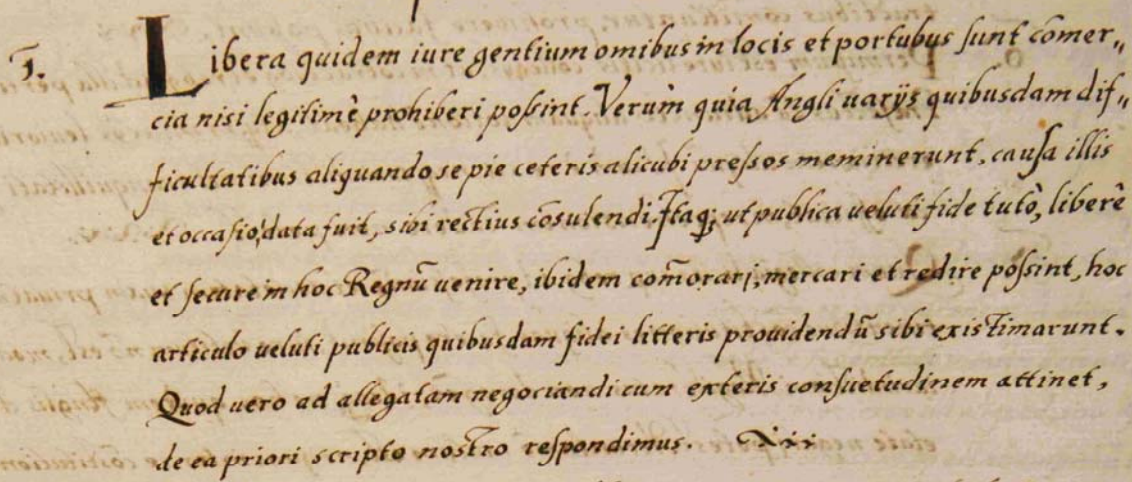 1. Libera quidem iure gentium omibus in locis et portubus sunt cõmer„
cia nisi legitimè prohiberi poßint. Verùm quia Angli uarijs quibusdam dif„
ficultatibus aliquando sepie ceteris alicubi preſsos meminerunt, cauſa illis
et occaſio, data fuit, sibi rectius cõsulendi. Itaq; ut publica ueluti fide tutò, liberè
et ſecure in hoc Regnũ uenire, ibidem com̃orari, mercari et redire poſsint, hoc
articulo ueluti publicis quibusdam fidei litteris prouidendũ sibi existimarunt.
Quod uero ad allegatam negociandi cum exteris conſuetudinem attinet,
de ea priori scripto nostro reſpondimus.